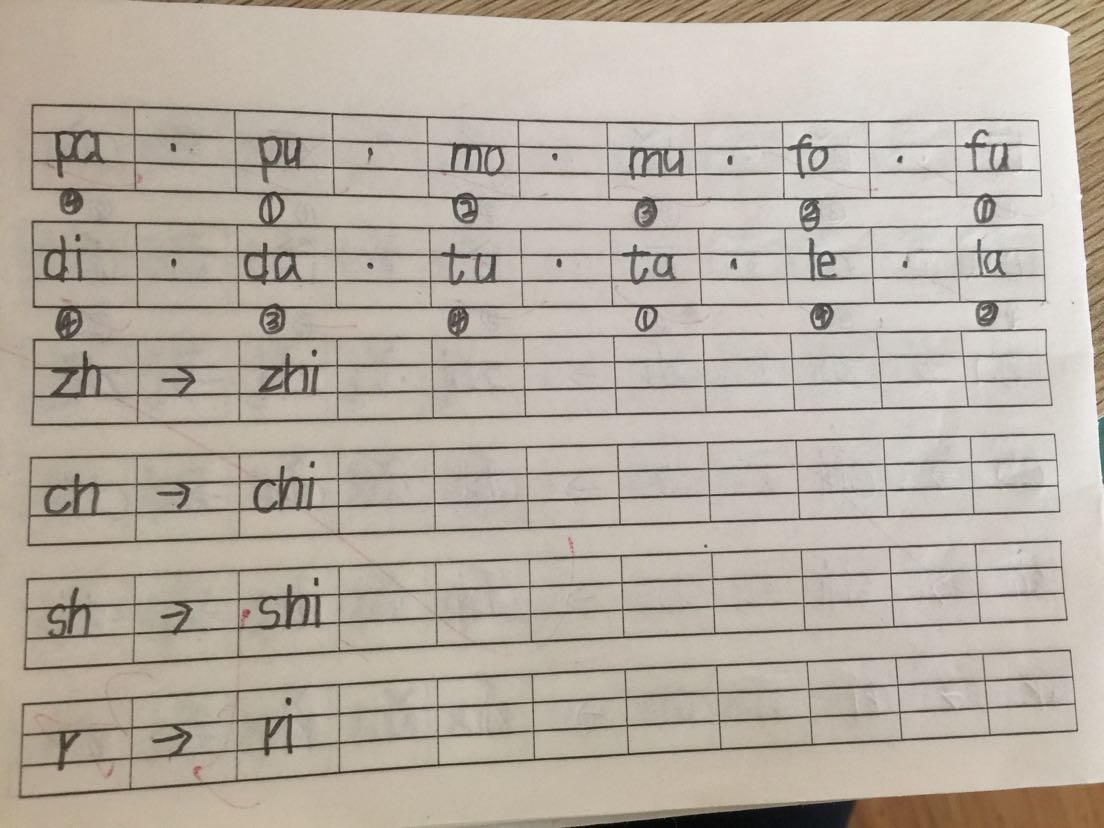 pa · pu · mo · mu · fo · fu
④ ① ② ③ ② ①
di · da · tu · ta · le · la
④ ③ ④ ① ④ ②
zh → zhi
ch → chi
sh → shi
r → ri